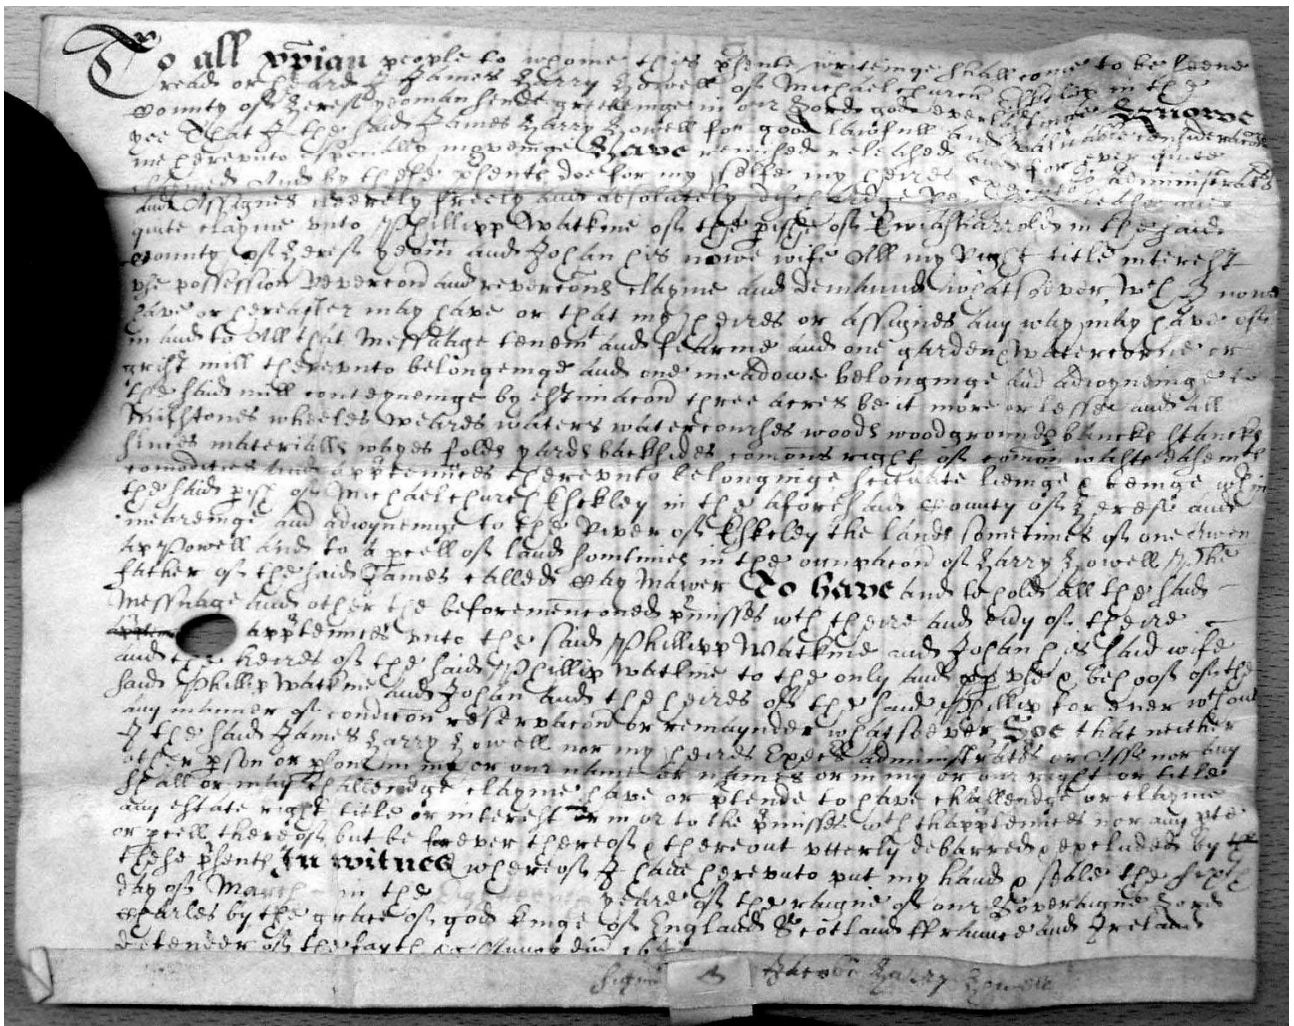 To all xpian people to whome theis pñte writeinge shall come to be seene
read or heard I James Harry Howell of Michaelchurch in the
County of Heref yeoman sende greetinge in our Lord god everlastinge Knowe
yee That I the said James Harry Howell for good lawfull and valuable consideracons
me herevnto especially moveinge Have remised released and for ever quite
claymed And by these pñts doe for my selfe my heires executors administrators
and Assignes meerely freely and absolutely dischardge release and
quite clayme vnto Phillipp Watkine of the pishe of in the said
County of Heref yeom and Johan his nowe wife All my Right title interest
vse possession Revercon and revercons clayme and demaund whatsoever wch I nowe
have or hereafter may have or that my heires or assignes any way may have of
in and to All that Messuage tenemt and fearme and one garden watercorne or
grist mill therevnto belongeinge and one meadowe belonginge and adioyneinge to
the said mill conteyneinge by estimacon three acres be it more or lesse and all
Millstones wheeles weares waters watercourses woods woodgrounds bancks stancks
materialls wayes folds yards backsides comons right of comon wast easemts
comodities and apptenñces therevnto belonginge scituate lieinge & beinge wthin
the said pish of Michaelchurch Eskley in the aforesaid County of Heref and
meareinge and adioyneinge to the River of Eskeley the lands sometimes of one Owen
ap Powell and to a pcell of land somtimes in the occupacon of Harry Howell
father of the said James called Mawer To have and to hold all the said
Messuage and other the beforemenconed pmisses wth theire and eidy of theire
apptennces vnto the said Phillipp Watkine and Johan his said wife
and the heires of the said Phillip Watkine to the only and pp vse & behoof of the
said Phillip Watkine and Johan and the heires of the said Phillip for ever wthout
any manner of condicon reservacon or remaynder whatsoever Soe that neither
I the said James Harry Howell nor my heires Execs administrators or Ass nor any
other pson or psons in my or our name or names or in my or our right or title
shall or may challendge clayme have or ptende to have challendge or clayme
any estate right title or interest in or to the pmisses wth thapptennces nor any pte
or pcell thereof but be forever thereof & thereout vtterly debarred & excluded by
these pñts In witnes whereof I have herevnto put my hand & seale the sixth
day of March in the yeare of the raigne of our Soveraigne Lord
Charles by the grace of god kinge of England Scotland ffraunce and Ireland
defender of the fayth &c Annoq dni
Signu Jacobi Harry Howell